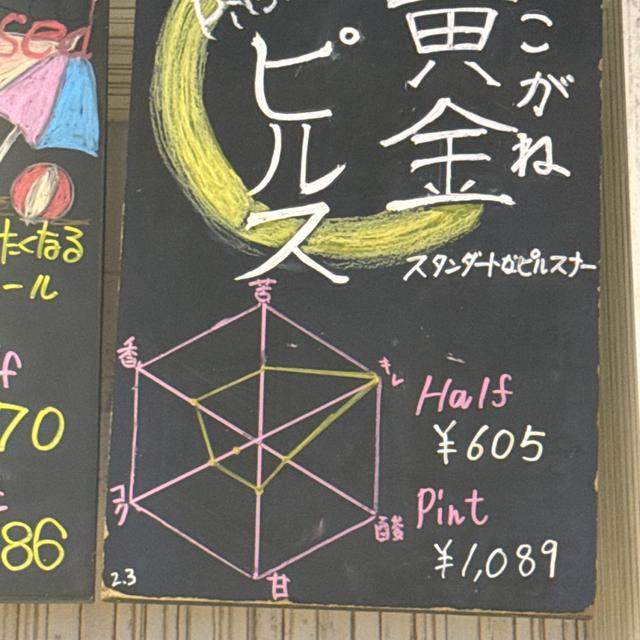 sed
たくなる
ール
f
70
86
こがね
黄金
ピルス
スタンダードなピルスナー
苦
香
キレ
コク
酸
甘
2.3
Half
¥605
Pint
¥1,089